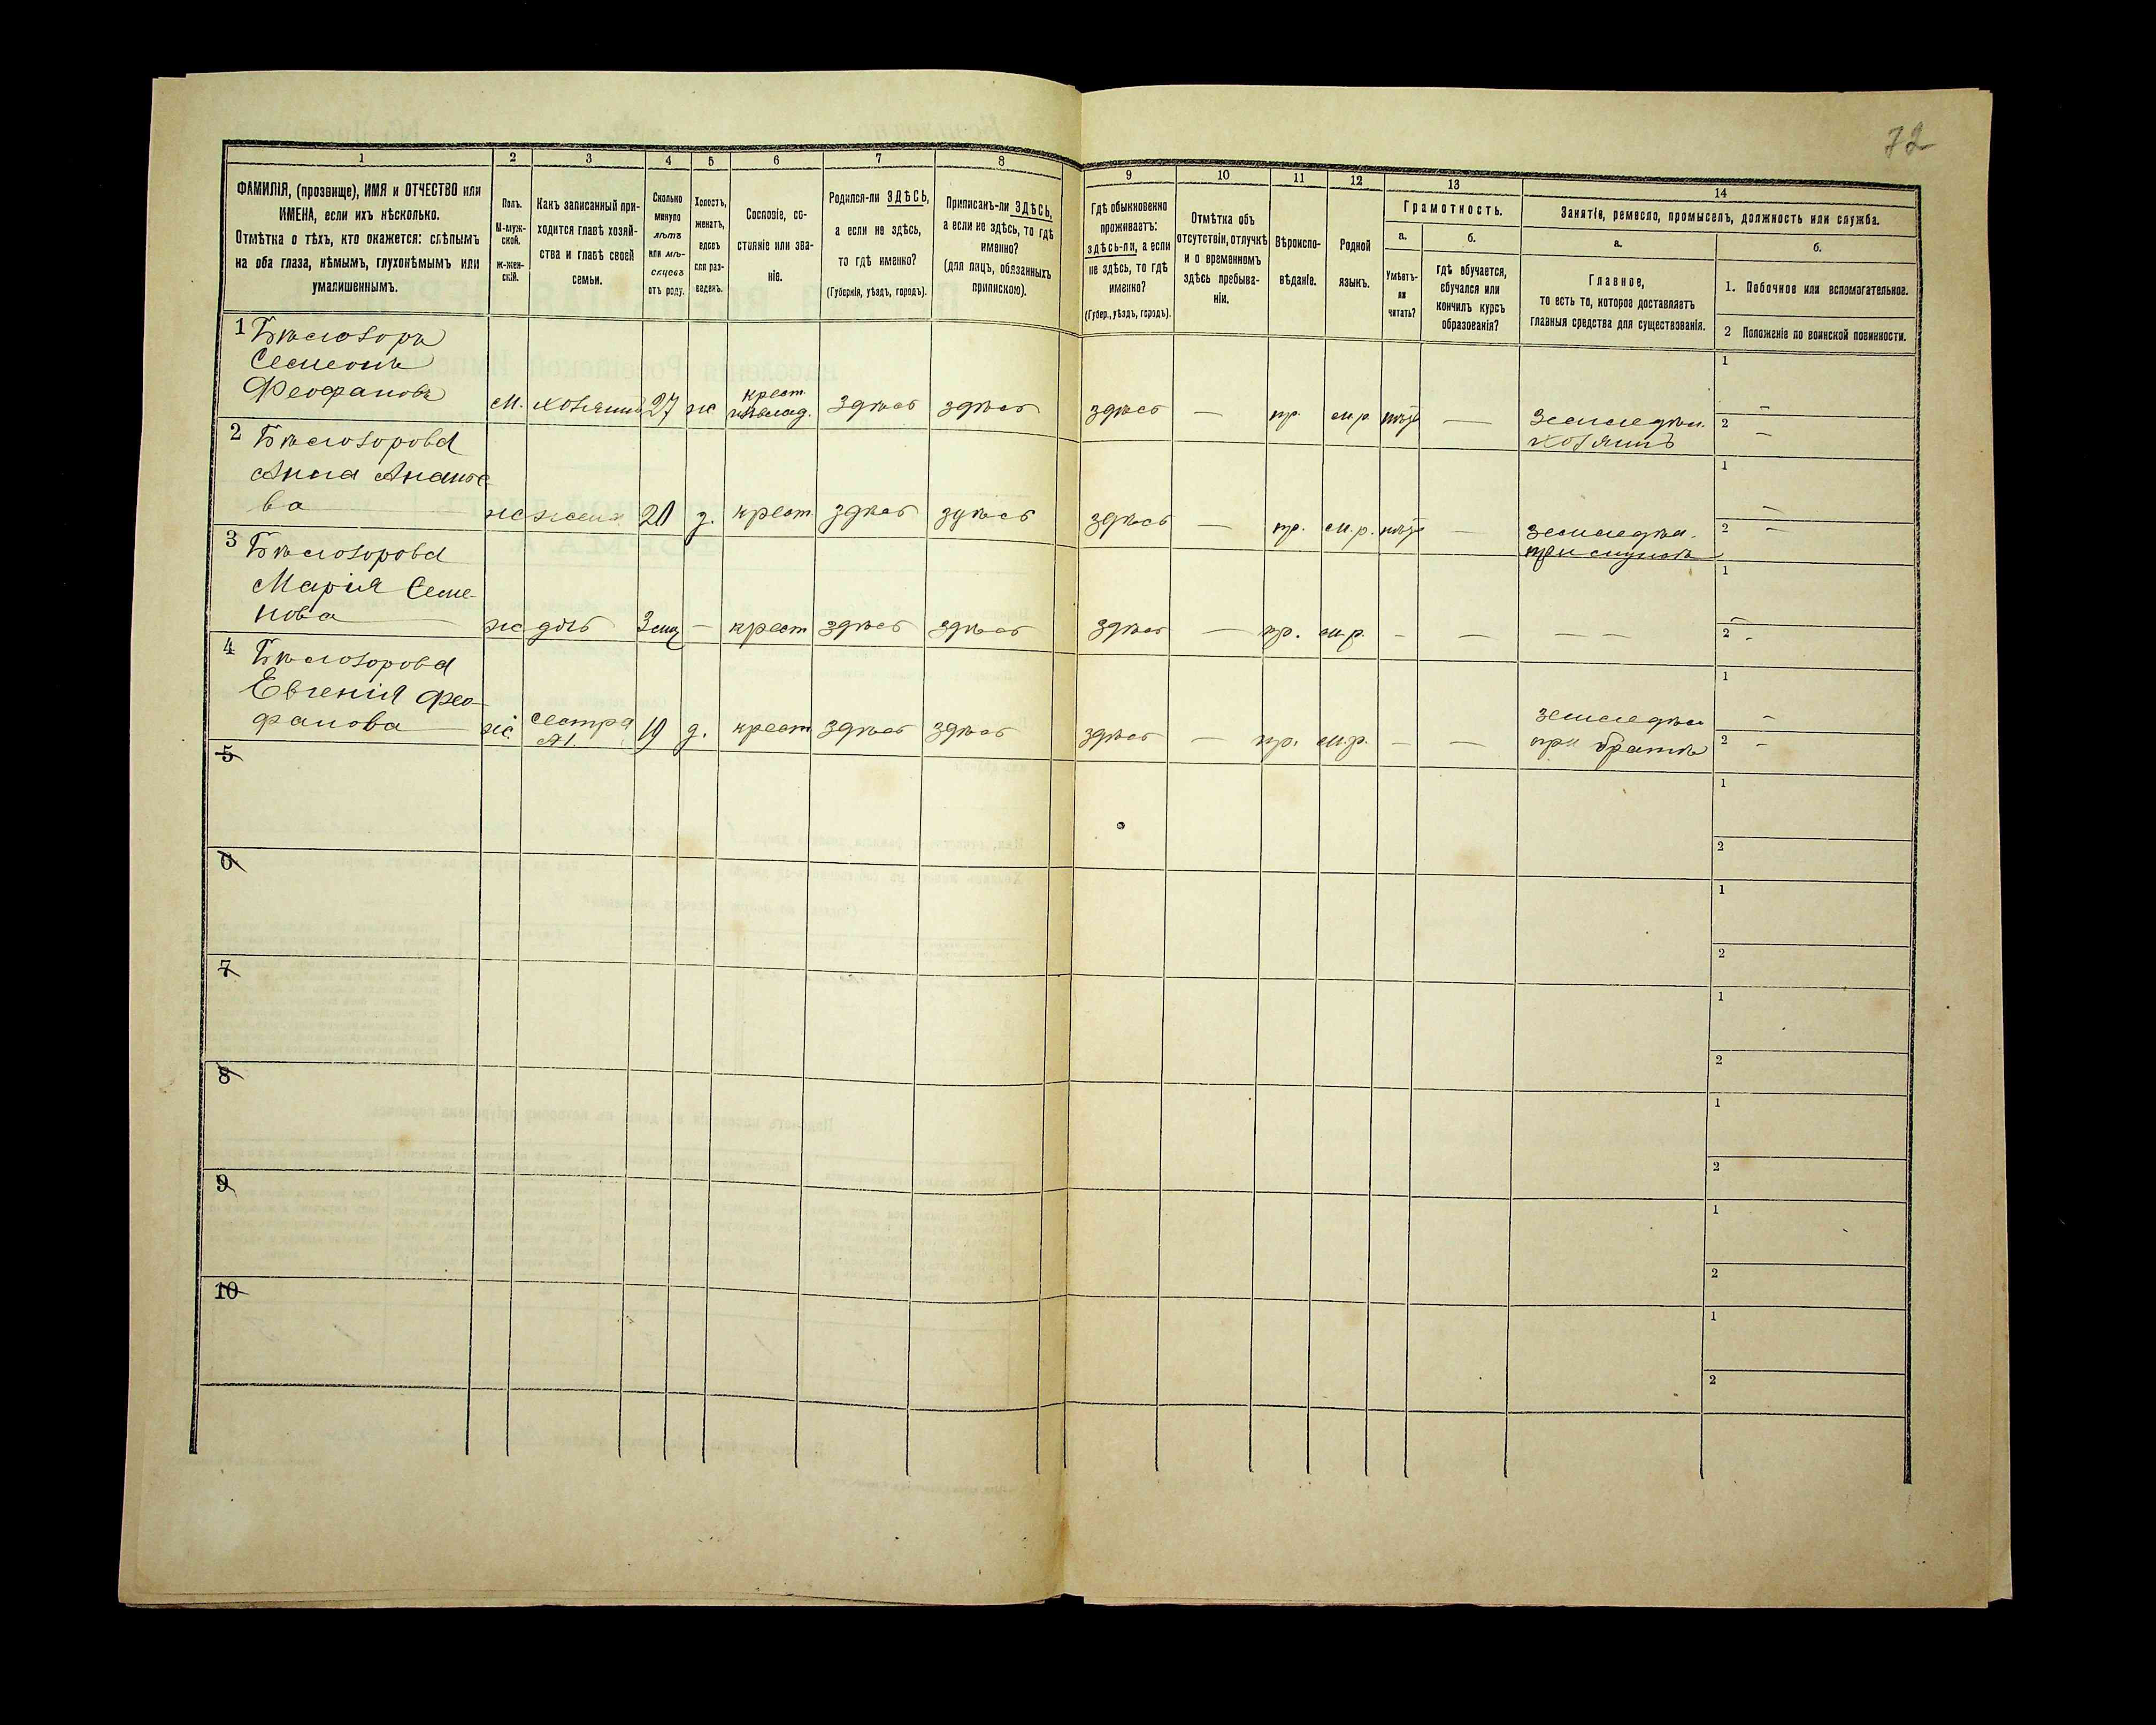 72
1 2 3 4 5 6 7 8 9 10 11 12 13 14
ФАМИЛІЯ, (прозвище), ИМЯ и ОТЧЕСТВО или
ИМЕНА, если ихъ нѣсколько.
Отмѣтка о тѣхъ, кто окажется: слѣпымъ
на оба глаза, нѣмымъ, глухонѣмымъ или
умалишеннымъ.
Полъ.
М-муж-
ской.
ж-жен-
скій.
Какъ записанный при-
ходится главѣ хозяй-
ства и главѣ своей
семьи.
Сколько
минуло
лѣтъ
или мѣ-
сяцевъ
отъ роду.
Холостъ,
женатъ,
вдовъ
или раз-
веденъ.
Сословіе, со-
стояніе или зва-
ніе.
Родился-ли ЗДѢСЬ,
а если не здѣсь,
то гдѣ именно?
(Губернія, уѣздъ, городъ).
Приписанъ-ли ЗДѢСЬ,
а если не здѣсь, то гдѣ
именно?
(для лицъ, обязанныхъ
припискою).
Гдѣ обыкновенно
проживаетъ:
здѣсь-ли, а если
не здѣсь, то гдѣ
именно?
(Губер., уѣздъ, городъ).
Отмѣтка объ
отсутствіи, отлучкѣ
и о временномъ
здѣсь пребыва-
ніи.
Вѣроиспо-
вѣданіе.
Родной
языкъ.
Грамотность.
а.
Умѣетъ-
ли
читать?
б.
гдѣ обучается,
обучался или
кончилъ курсъ
образованія?
Занятіе, ремесло, промыселъ, должность или служба.
а.
Главное,
то есть то, которое доставляетъ
главныя средства для существованія.
б.
1. Побочное или вспомогательное.
2 Положеніе по воинской повинности.
1 Бѣлозоръ
Семенъ
Феофановъ м. хозяинъ 27 ж крест. здѣсь здѣсь здѣсь — пр. м.р. — земледѣл.
хозяинъ
1 —
2 —
2 Бѣлозорова
Анна Ананье
ва ж жена 20 з. крест. здѣсь здѣсь здѣсь — пр. м.р. — земледѣл.
1 —
2 —
3 Бѣлозорова
Марія Семе-
нова ж дочь 3 мц — крест здѣсь здѣсь здѣсь — пр. м.р. — — — —
1 —
2 -
4 Бѣлозорова
Евгенія Фео-
фанова ж. сестра
№1. 19 д. крест здѣсь здѣсь здѣсь — пр. м.р. — — земледѣл
при братѣ
1 —
2 —
5
1
2
6
1
2
7
1
2
8
1
2
9
1
2
10
1
2